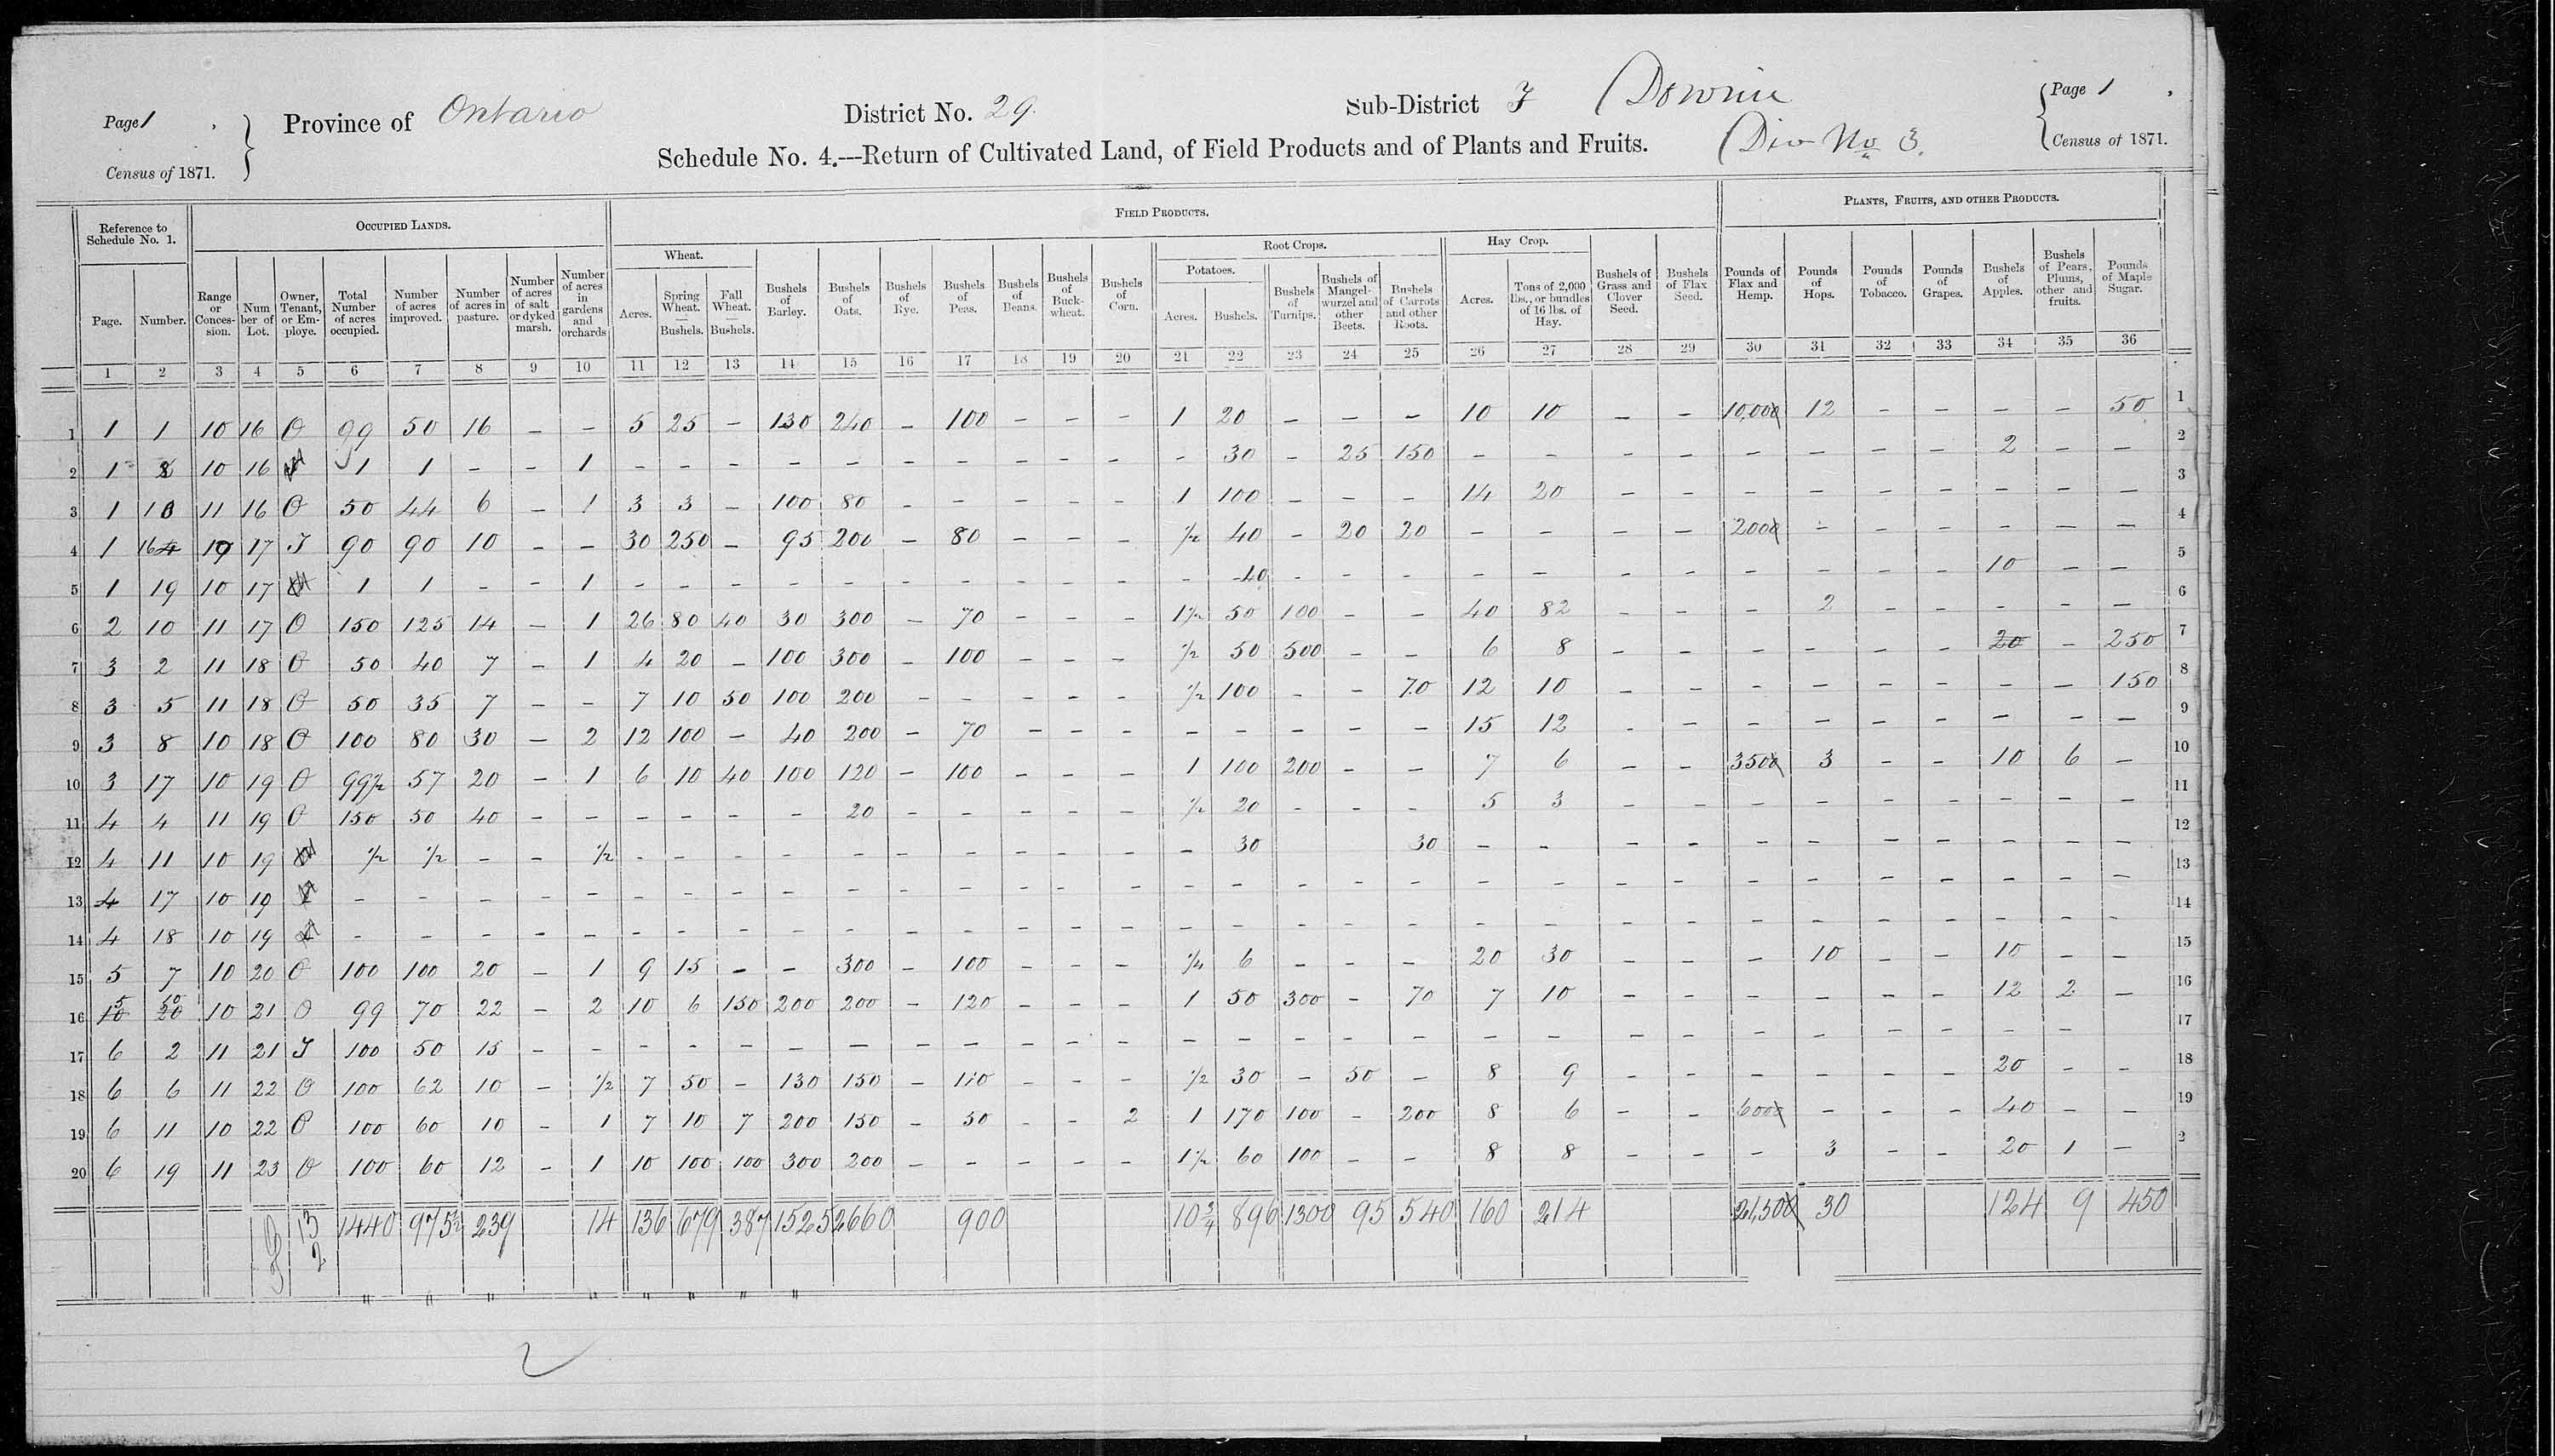 Page 1
Census of 1871.
Province of Ontario
District No. 29
Sub-District F Downie
Div No 3.
Page 1
Census of 1871.
Schedule No. 4.---Return of Cultivated Land, of Field Products and of Plants and Fruits.
Reference to Schedule No. 1.
OCCUPIED LANDS.
FIELD PRODUCTS.
PLANTS, FRUITS, AND OTHER PRODUCTS.
Wheat.
Root Crops.
Potatoes.
Hay Crop.
Page.
Number.
Range or Conces- sion.
Num ber of Lot.
Owner, Tenant, or Em- ploye.
Total Number of acres occupied.
Number of acres improved.
Number of acres in pasture.
Number of acres of salt or dyked marsh.
Number of acres in gardens and orchards
Acres.
Spring Wheat. — Bushels.
Fall Wheat. — Bushels.
Bushels of Barley.
Bushels of Oats.
Bushels of Rye.
Bushels of Peas.
Bushels of Beans.
Bushels of Buck- wheat.
Bushels of Corn.
Acres.
Bushels.
Bushels of Turnips.
Bushels of Mangel- wurzel and other Beets.
Bushels of Carrots and other Roots.
Acres.
Tons of 2,000 lbs., or bundles of 16 lbs. of Hay.
Bushels of Grass and Clover Seed.
Bushels of Flax Seed.
Pounds of Flax and Hemp.
Pounds of Hops.
Pounds of Tobacco.
Pounds of Grapes.
Bushels of Apples.
Bushels of Pears, Plums, other and fruits.
Pounds of Maple Sugar.
1 2 3 4 5 6 7 8 9 10 11 12 13 14 15 16 17 18 19 20 21 22 23 24 25 26 27 28 29 30 31 32 33 34 35 36
1 1 1 10 16 O 99 50 16 - - 5 25 - 130 240 - 100 - - - 1 20 - - - 10 10 - - 10,000 12 - - - - 50 1
2 1 10 16 1 1 - - 1 - - - - - - - - - - - 30 - 25 150 - - - - - - - - 2 - - 2
3 1 10 11 16 O 50 44 6 - 1 3 3 - 100 80 - - - - - 1 100 - - - 14 20 - - - - - - - - - 3
4 1 16 10 17 T 90 90 10 - - 30 250 - 95 200 - 80 - - - ½ 40 - 20 20 - - - - 2000 - - - - - - 4
5 1 19 10 17 1 1 - - 1 - - - - - - - - - - - 40 - - - - - - - - - - - 10 - - 5
6 2 10 11 17 O 150 125 14 - 1 26 80 40 30 300 - 70 - - - 1½ 50 100 - - 40 82 - - - 2 - - - - - 6
7 3 2 11 18 O 50 40 7 - 1 4 20 - 100 300 - 100 - - - ½ 50 500 - - 6 8 - - - - - - 20 - 250 7
8 3 5 11 18 O 50 35 7 - - 7 10 50 100 200 - - - - - ½ 100 - - 70 12 10 - - - - - - - - 150 8
9 3 8 10 18 O 100 80 30 - 2 12 100 - 40 200 - 70 - - - - - - - - 15 12 - - - - - - - - - 9
10 3 17 10 19 O 99½ 57 20 - 1 6 10 40 100 120 - 100 - - - 1 100 200 - - 7 6 - - 3500 3 - - 10 6 - 10
11 4 4 11 19 O 150 50 40 - - - - - - 20 - - - - - ½ 20 - - - 5 3 - - - - - - - - - 11
12 4 11 10 19 ½ ½ - - ½ - - - - - - - - - - - 30 30 - - - - - - - - - - - 12
13 4 17 10 19 - - - - - - - - - - - - - - - - - - - - - - - - - - - - - - - 13
14 4 18 10 19 - - - - - - - - - - - - - - - - - - - - - - - - - - - - - - - 14
15 5 7 10 20 O 100 100 20 - 1 9 15 - - 300 - 100 - - - ¼ 6 - - - 20 30 - - - 10 - - 10 - - 15
16 5 10 10 20 10 21 O 99 70 22 - 2 10 6 150 200 200 - 120 - - - 1 50 300 - 70 7 10 - - - - - - 12 2 - 16
17 6 2 11 21 T 100 50 15 - - - - - - - - - - - - - - - - - - - - - - - - - - - 17
18 6 6 11 22 O 100 62 10 - ½ 7 50 - 130 150 - 110 - - - ½ 30 - 50 - 8 9 - - - - - - 20 - - 18
19 6 11 10 22 O 100 60 10 - 1 7 10 7 200 150 - 50 - - 2 1 170 100 - 200 8 6 - - 6000 - - - 40 - - 19
20 6 19 11 23 O 100 60 12 - 1 10 100 100 300 200 - - - - - 1½ 60 100 - - 8 8 - - - 3 - - 20 1 - 2
O 13 1440 975½ 239 14 136 679 387 1525 2660 900 10¾ 896 1300 95 540 160 214 21,500 30 124 9 450
T 2
" " " " " " " "